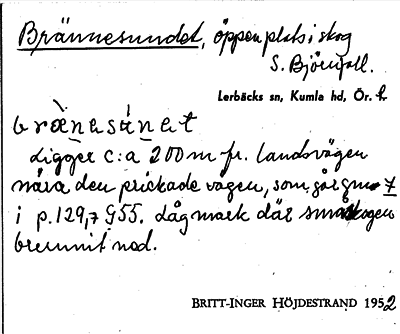 Brännesundet, öppen plats i skog
S. Björnfall.
Lerbäcks sn, Kumla hd, Ör. l.
bràenesúnet
Ligger c:a 200 m fr. landsvägen
nära den prickade vägen, som går gm 7
i p.129,7 G55. Låg mark där småskogen
brunnit ned.
BRITT-INGER HÖJDESTRAND 1952